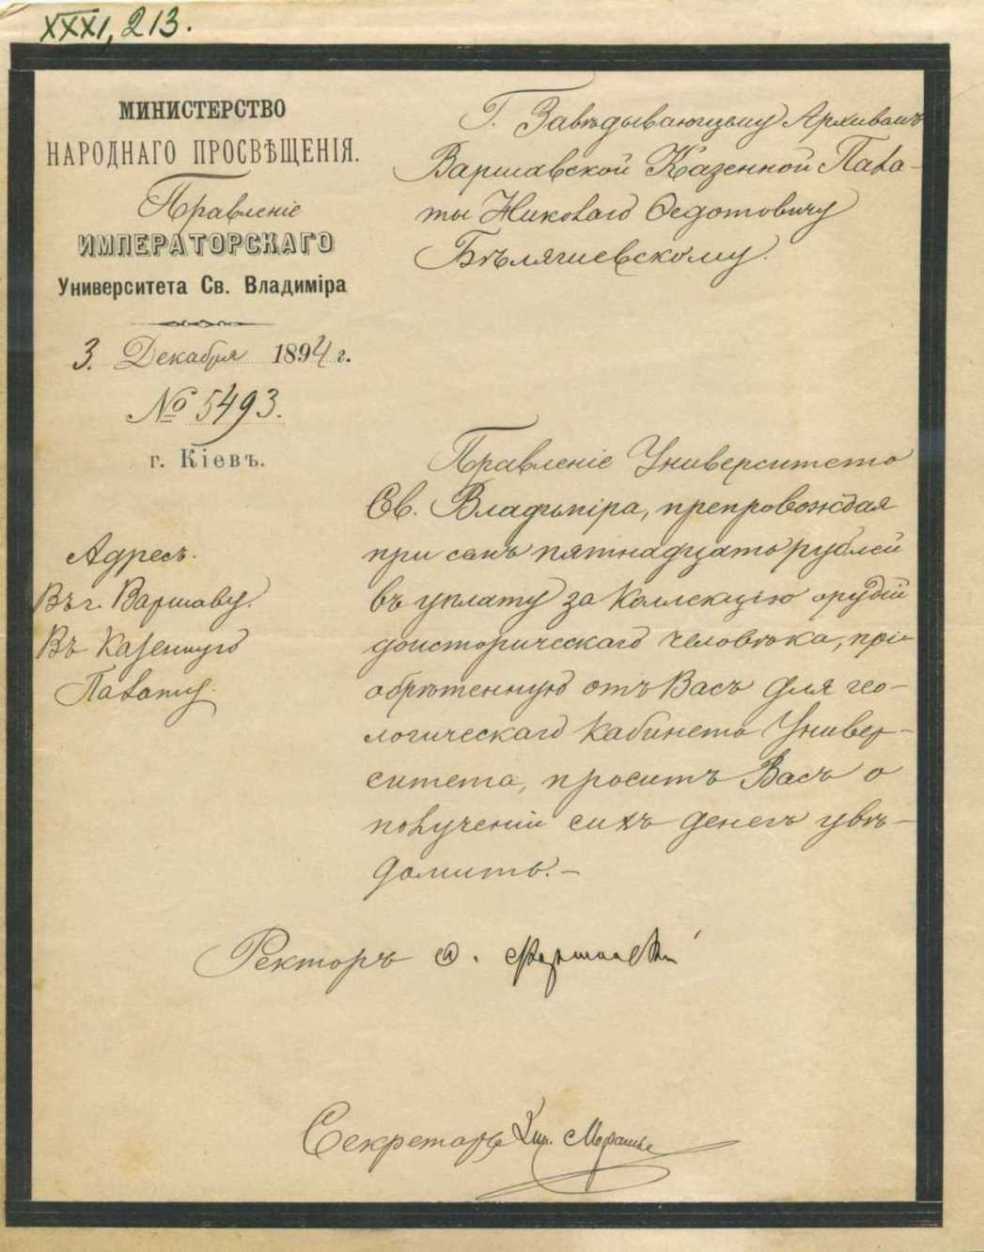 XXXI, 213.
МИНИСТЕРСТВО
НАРОДНАГО ПРОСВѢЩЕНІЯ.
Правленіе
ИМПЕРАТОРСКАГО
Университета Св. Владиміра
3. Декабря 1894 г.
№ 5493.
г. Кіевъ.
Адресъ.
Въ г. Варшаву.
Въ Казенную
Палату.
Г. Завѣдывающему Архивомъ
Варшавской Казенной Пала-
ты Николаю Ѳедотовичу
Бѣляшевскому.
Правленіе Университета
Св. Владиміра, препровождая
при семъ пятнадцать рублей
въ уплату за коллекцію орудій
доисторическаго человѣка, прі-
обрѣтенную отъ Васъ для гео-
логическаго кабинета Универ-
ситета, проситъ Васъ о
полученіи сихъ денегъ увѣ-
домить.-
Ректоръ Ѳ.
Секретарь